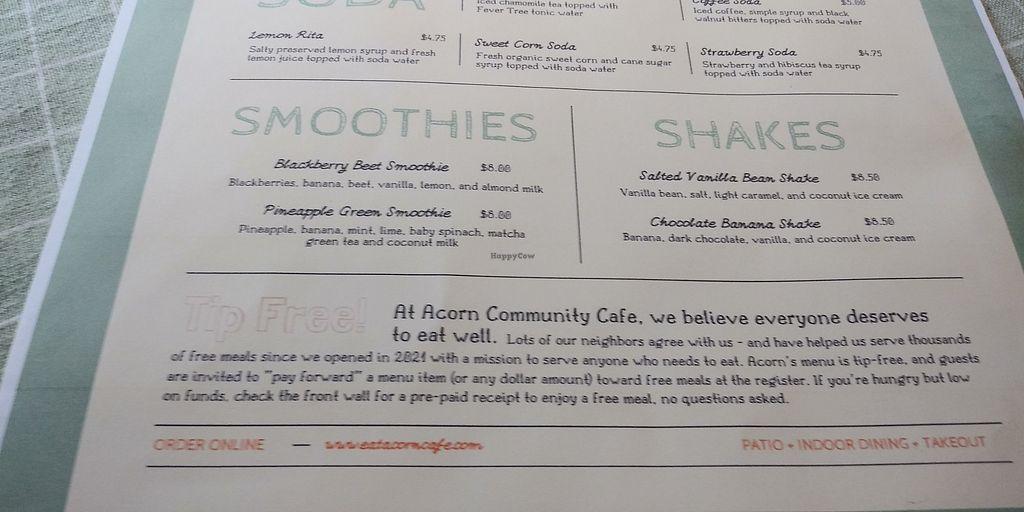 SODA
Iced chamomile tea topped with
Fever Tree tonic water
Coffee Soda $5.00
Iced coffee, simple syrup and black
walnut bitters topped with soda water
Lemon Rita $4.75
Salty preserved lemon syrup and fresh
lemon juice topped with soda water
Sweet Corn Soda $4.75
Fresh organic sweet corn and cane sugar
syrup topped with soda water
Strawberry Soda $4.75
Strawberry and hibiscus tea syrup
topped with soda water
SMOOTHIES
Blackberry Beet Smoothie $8.00
Blackberries, banana, beet, vanilla, lemon, and almond milk
Pineapple Green Smoothie $8.00
Pineapple, banana, mint, lime, baby spinach, matcha
green tea and coconut milk
HappyCow
SHAKES
Salted Vanilla Bean Shake $8.50
Vanilla bean, salt, light caramel, and coconut ice cream
Chocolate Banana Shake $8.50
Banana, dark chocolate, vanilla, and coconut ice cream
Tip Free!
At Acorn Community Cafe, we believe everyone deserves
to eat well. Lots of our neighbors agree with us - and have helped us serve thousands
of free meals since we opened in 2021 with a mission to serve anyone who needs to eat. Acorn's menu is tip-free, and guests
are invited to "pay forward" a menu item (or any dollar amount) toward free meals at the register. If you're hungry but low
on funds, check the front wall for a pre-paid receipt to enjoy a free meal, no questions asked.
ORDER ONLINE — www.eatacorncafe.com
PATIO + INDOOR DINING + TAKEOUT